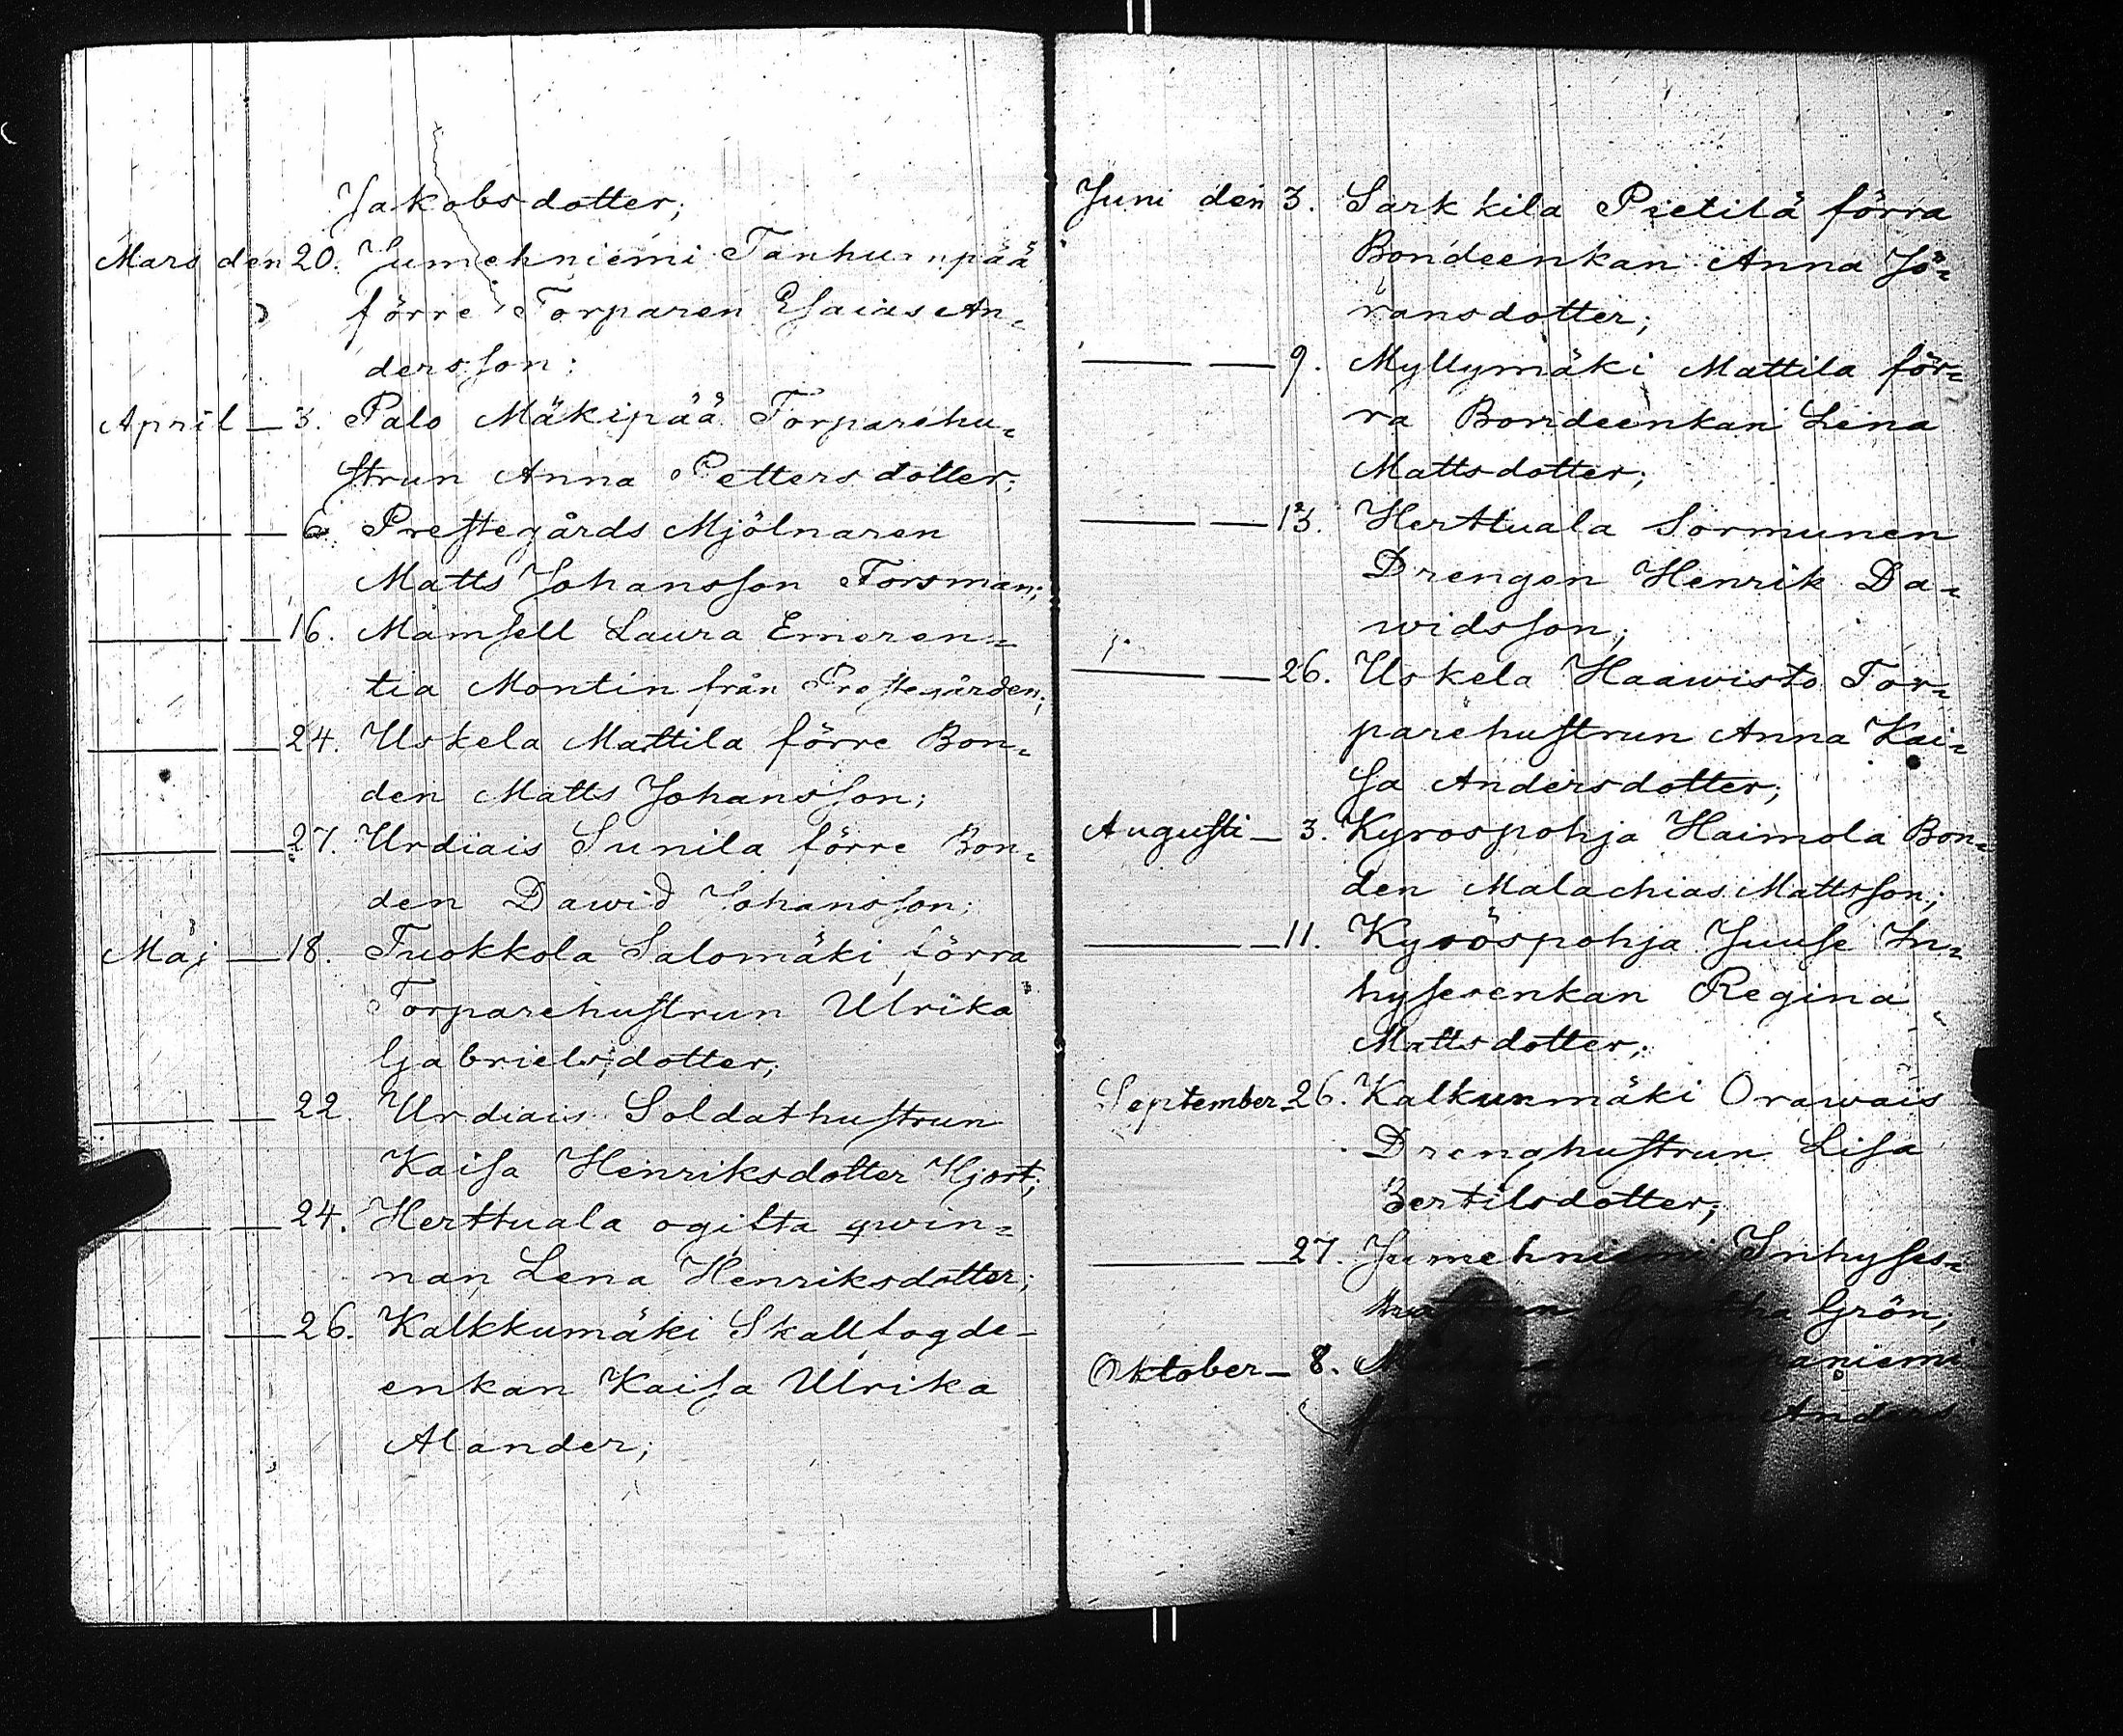 Jakobsdotter;
Mars den 20. Jumehniemi Tanhuanpää
förre Torparen Esaias An=
dersson;
April — 3. Palo Mäkipää Torparehu=
strun Anna Pettersdotter;
——— — 6. Prestegårds Mjölnaren
Matts Johansson Forsman;
——— — 16. Mamsell Laura Emeren=
tia Montin från Prestegården;
——— — 24. Uskela Mattila förre Bon=
den Matts Johansson;
——— — 27. Urdiais Sunila förre Bon=
den Dawid Johansson;
Maj — 18. Tuokkola Salomäki förra
Torparehustrun Ulrika
Gabrielsdotter;
——— — 22. Urdiais Soldathustrun
Kaisa Henriksdotter Hjort;
——— — 24. Herttuala ogifta qwin=
nan Lena Henriksdotter;
——— — 26. Kalkkumäki Skallfogde-
enkan Kaisa Ulrika
Alander;
Juni den 3. Sarkkila Pietilä förra
Bondeenkan Anna Jö=
ransdotter;
——— — 9. Myllymäki Mattila för=
ra Bondeenkan Lena
Mattsdotter;
——— — 13. Herttuala Sormunen
Drengen Henrik Da=
widsson;
——— — 26. Uskela Haawisto Tor=
parehustrun Anna Kai=
sa Andersdotter;
Augusti — 3. Kyrospohja Haimola Bon=
den Malachias Mattsson;
——— — 11. Kyröspohja Juuse In=
hysesenkan Regina
Mattsdotter;
September — 26. Kalkunmäki Orawais
Drenghustrun Lisa
Bertilsdotter;
——— — 27. Jumehniemi Inhyses=
hustrun Grön;
Oktober — 8.
Anders